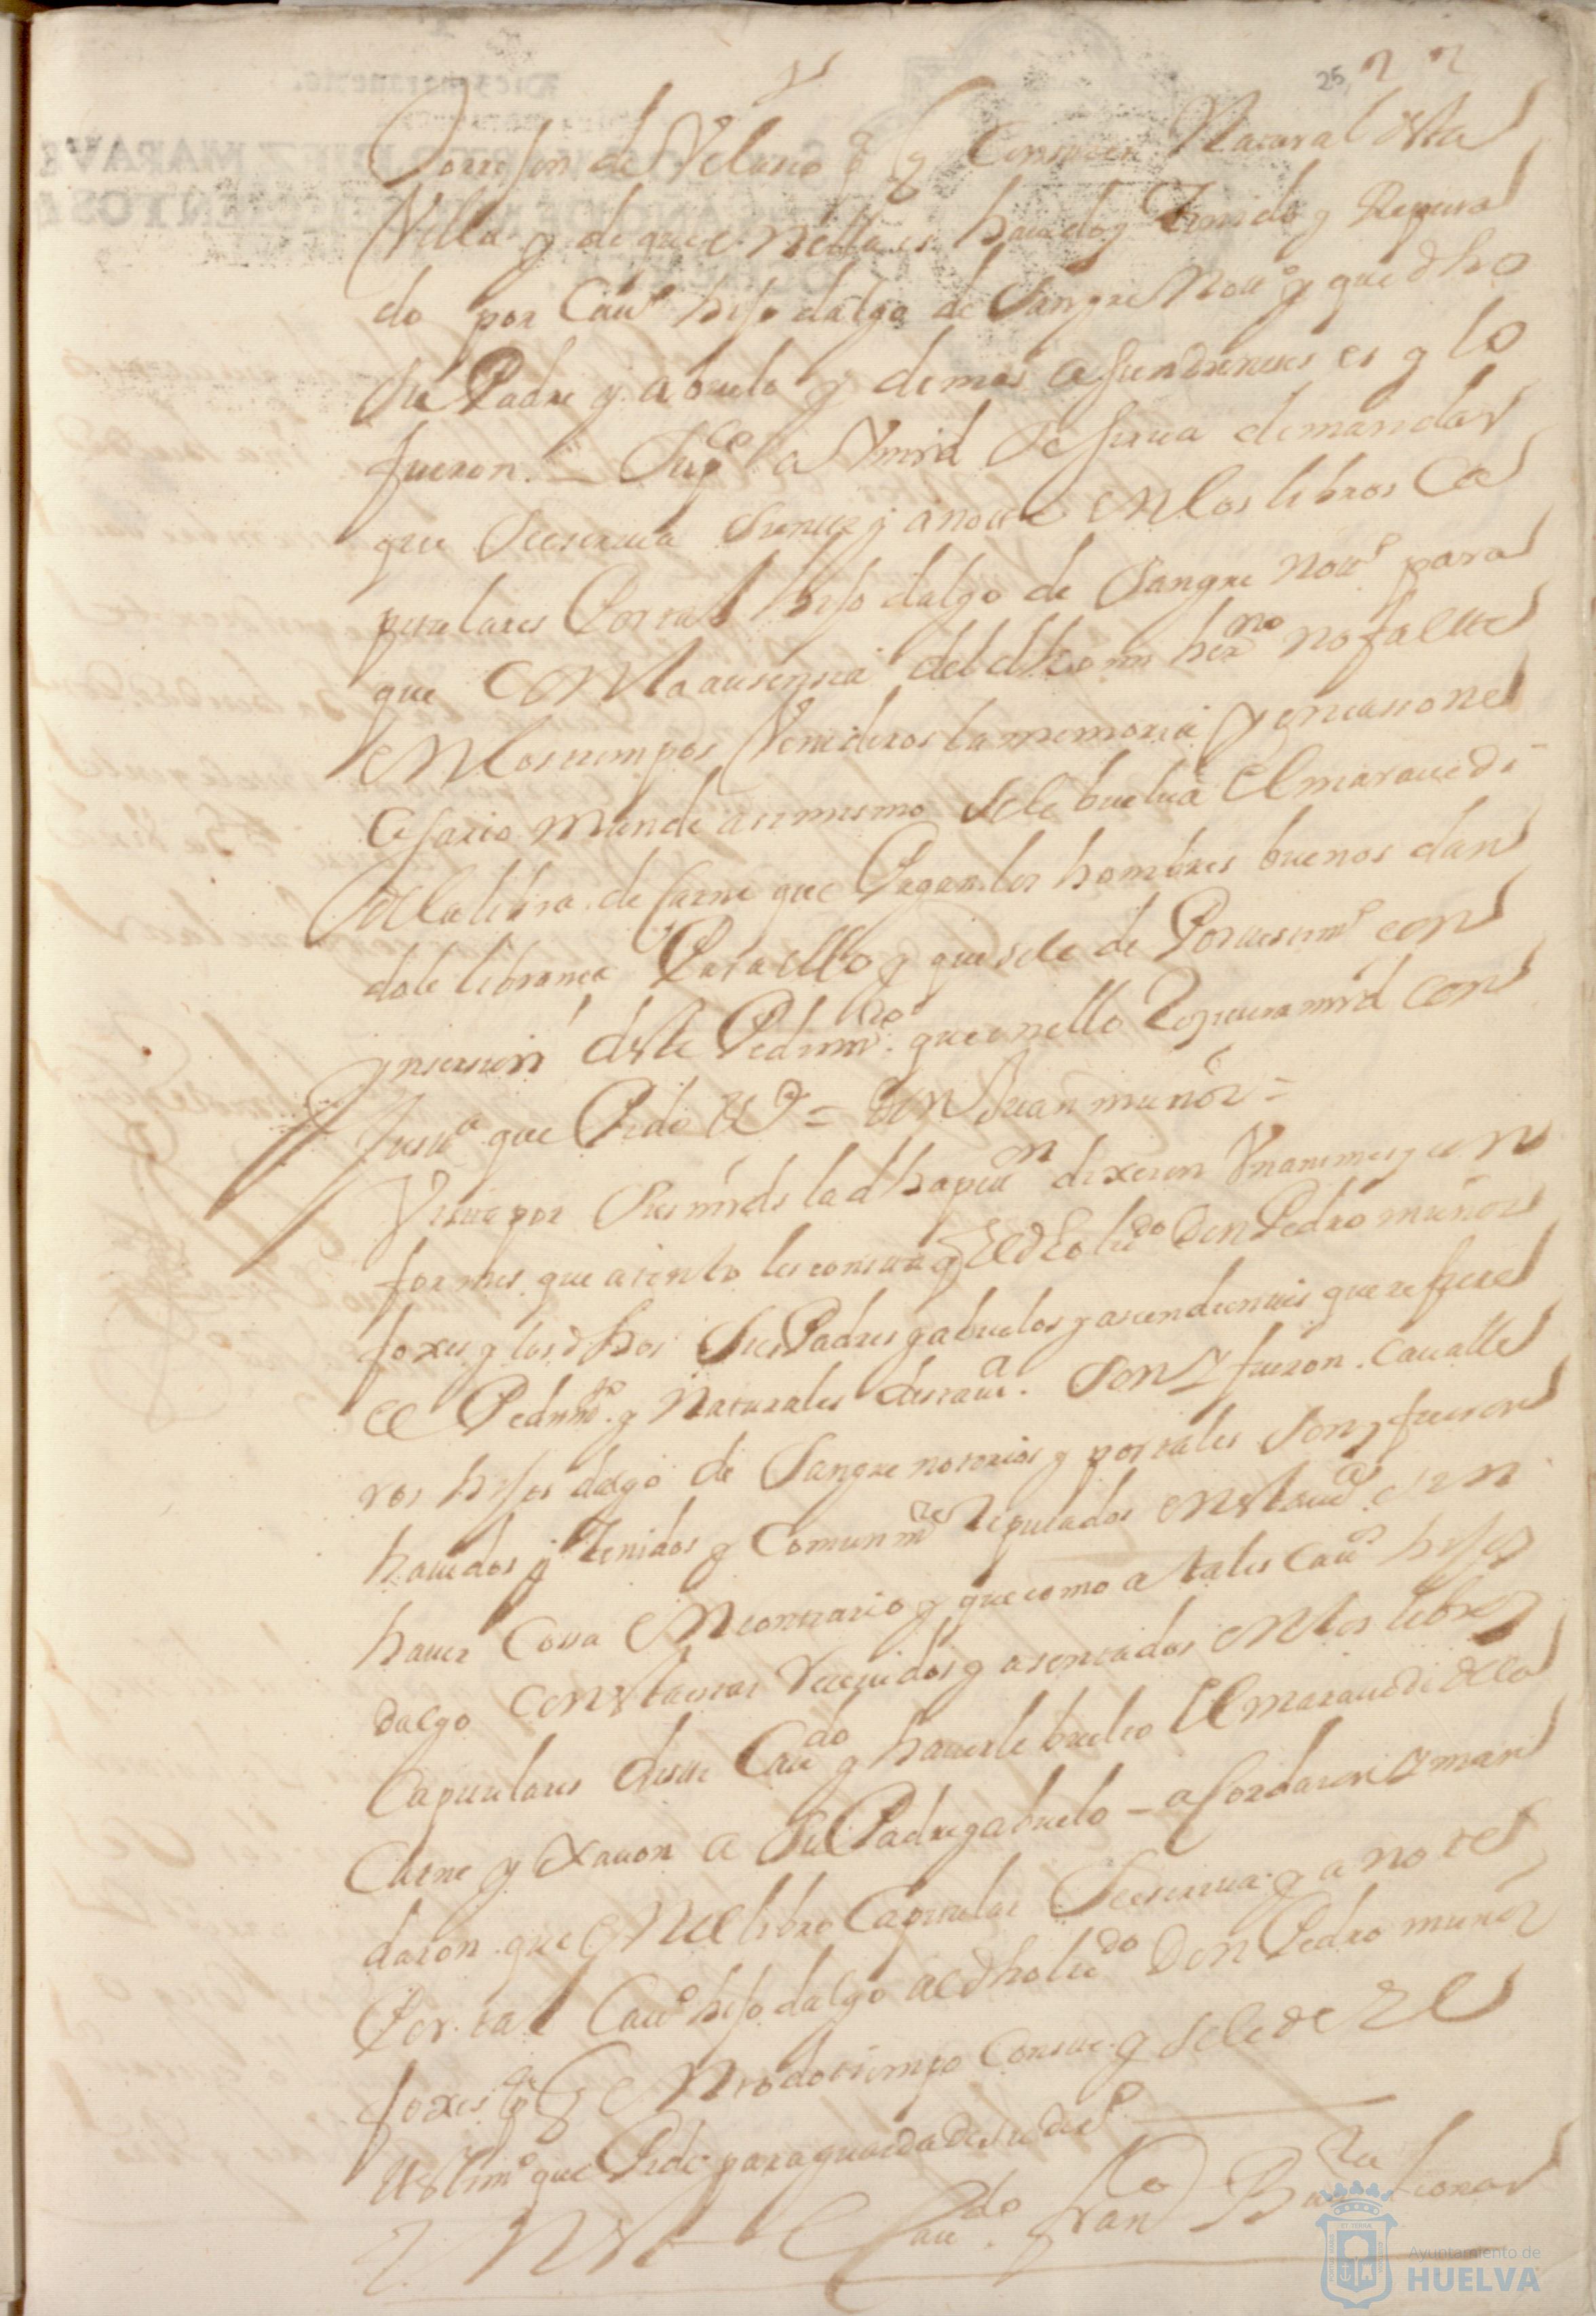 25 22
Torrejon de Velasco q. Consta ser Natural desta
Villa y de que en ella es havido y Tenido y Reputa
do por Cavº hijo dalgo de Sangre Notº y que dho
su Padre y abuelo y demas asendientes es y lo
fueron. — Supco a Vmrd Se sirva de mandar
que Se escriva siente y anote en los libros Ca
pitulares Por tal hijo dalgo de Sangre Notº para
que en la ausensia del dho mi herno no falte
en los tiempos Venideros la memoria y en caso ne
sesario mande asimismo se le buelva el maravedi
de la libra de Carne que Pagan los hombres buenos dan
dole libransa Para ello y que se le de Por testimº con
ynsersion deste Pedimto que en ello Resivira mrd con
Justª que Pido Vº = Don Juan muñoz =
Vista por Sus mrds la dha petisn dixeron Unanimes y con
formes que atento les consta q el dho lizdo Don Pedro muñoz
foxes y los dhos Sus Padres y abuelos y asendientes que refiere
el Pedimto y Naturales desta va. Son y fueron Cavalle
ros hijos dalgo de Sangre notorios y por tales Son y fueron
havidos y Tenidos y Comunmte Reputados en esta va sin
haver Cossa en contrario y que como a tales Cavº hijos
dalgo Constarnos Resevidos y asentados en los libros
Capitulares deste Cavdo y haverle buelto el maravedi de la
Carne y Xavon a Su Padre y abuelo — acordaron y man
daron que en el libro Capitular Se escriva y anote
Por tal Cavº hijo dalgo al dho lizdo Don Pedro muñoz
foxes pª q en todo tiempo Conste y se le de el
testimº que Pide para guarda de su derº
En este Cavdo Franco Bta
HUELVA
Ayuntamiento de